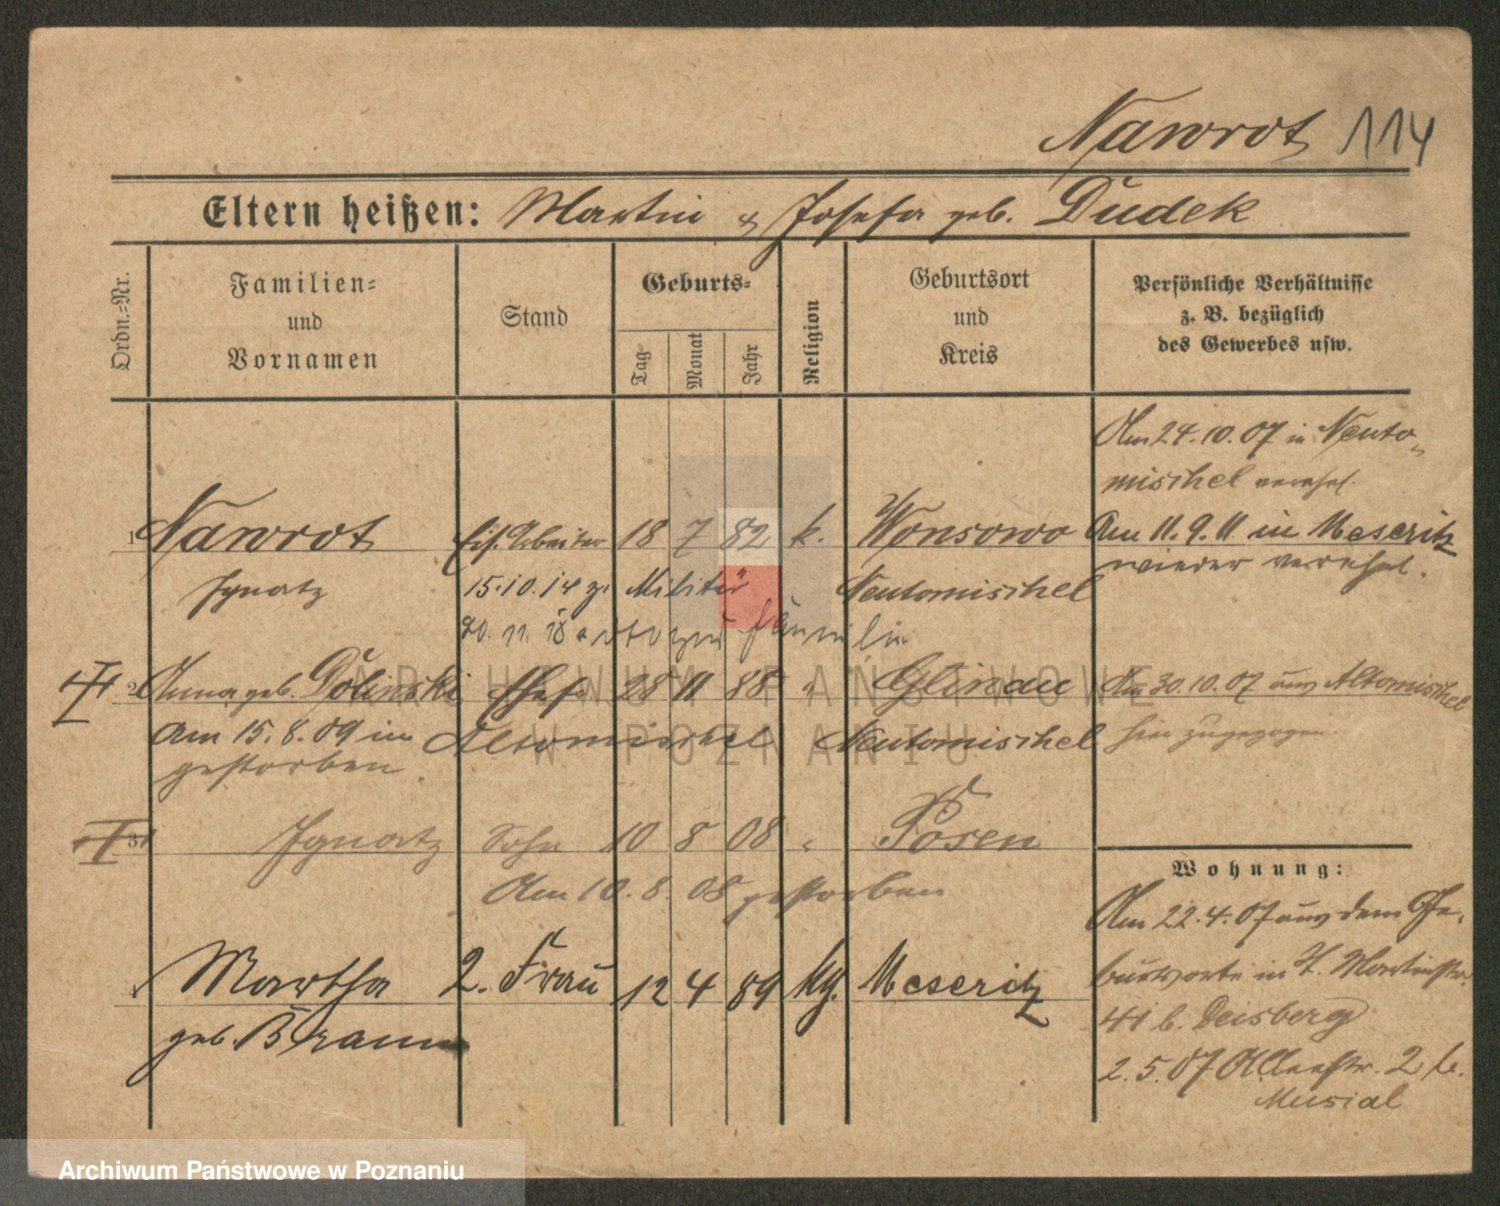 Nawrot 114
Eltern heißen: Martin & Josefa geb. Dudek
Ordn.=Nr.
Familien=
und
Vornamen
Stand
Geburts=
Tag
Monat
Jahr
Religion
Geburtsort
und
Kreis
Persönliche Verhältnisse
z. B. bezüglich
des Gewerbes usw.
Am 24.10.07 in Neuto-
mischel verehel.
1 Nawrot Eis. Arbeiter 18 7 82 k. Wonsowo Am 11.9.11 in Meseritz
Ignatz 15.10.14 z. Militär Neutomischel wieder verehel.
20. 11. 18
2 Anna geb. Dolinski Ehefr. 28 11 88 " Glinau Am 30.10.07 aus Altomischel
Am 15.8.09 in Altomischel Neutomischel hinzugezogen.
gestorben.
3 Ignatz Sohn 10 8 08 " Posen
Am 10.8.08 gestorben
Wohnung:
Am 22.4.07 aus dem Ge-
burtsorte in St. Martinstr.
41 b. Deisberg
2.5.07 Allerstr. 2 b.
Musial
Martha 2. Frau 12 4 89 kg. Meseritz
geb. Braun
ARCHIWUM PAŃSTWOWE
W POZNANIU
Archiwum Państwowe w Poznaniu